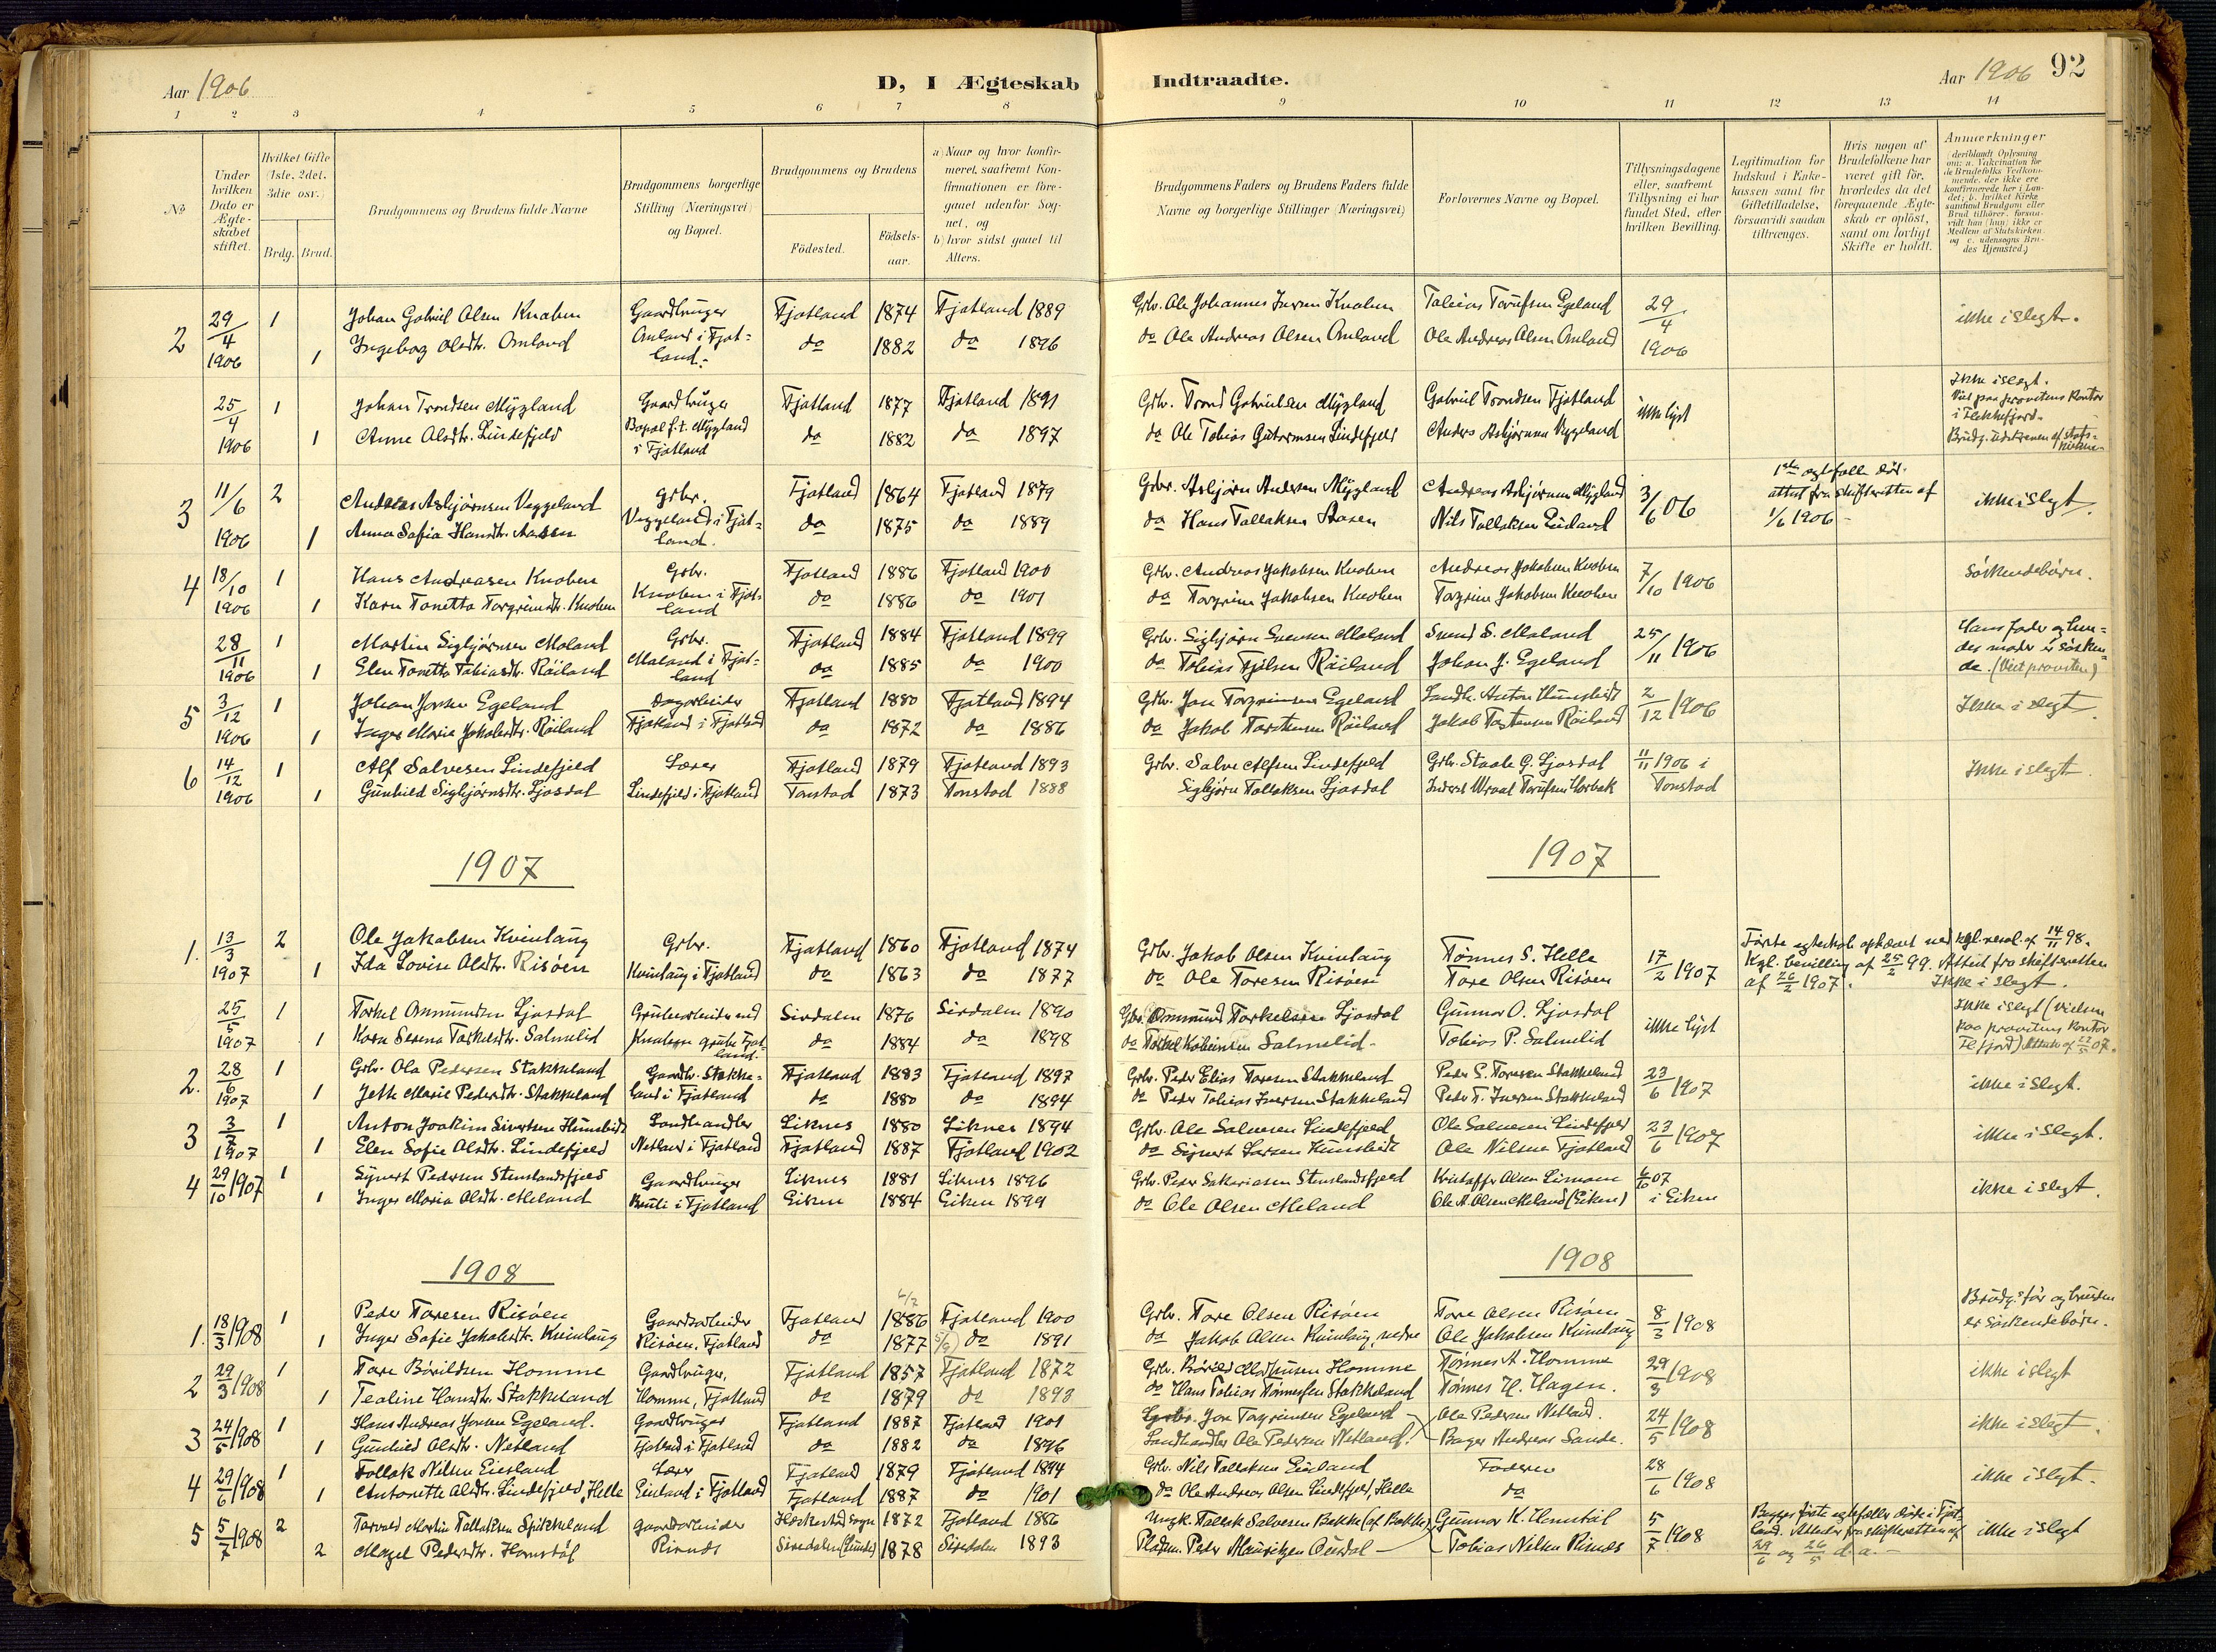 Aar 1906
D, I Ægteskab
Indtraadte.
Aar 1906 92
1 2 3 4 5 6 7 8
9 10 11 12 13 14
No
Under hvilken Dato er Ægteskabet stiftet.
Hvilket Gifte (1ste, 2det, 3die osv.)
Brdg. Brud.
Brudgommens og Brudens fulde Navne
Brudgommens borgerlige Stilling (Næringsvei) og Bopæl.
Brudgommens og Brudens
Födested.
Födselsaar.
a) Naar og hvor konfirmeret, saafremt Konfirmationen er foregaaet udenfor Sognet, og
b) hvor sidst gaaet til Alters.
Brudgommens Faders og Brudens Faders fulde Navne og borgerlige Stillinger (Næringsvei)
Forlovernes Navne og Bopæl.
Tillysningsdagene eller, saafremt Tillysning ei har fundet Sted, efter hvilken Bevilling.
Legitimation for Indskud i Enkekassen samt for Giftetilladelse, forsaavidt saadan tiltrænges.
Hvis nogen af Brudefolkene har været gift för, hvorledes da det foregaaende Ægteskab er oplöst, samt om lovligt Skifte er holdt.
Anmærkninger (deriblandt Oplysning om: a. Vakcination for de Brudefolks Vedkommende, der ikke ere konfirmerede her i Landet; b. hvilket Kirkesamfund Brudgom eller Brud tilhörer, forsaavidt han (hun) ikke er Medlem af Statskirken, og c. udensogns Brudes Hjemsted.)
2 29/4 1906 1 Johan Gabriel Olsen Knaben Gaardbruger Fjotland 1874 Fjotland 1889 Grbr. Ole Johannes Iversen Knaben Tobias Torufsen Egeland 29/4 1906 ikke i slegt.
1 Ingebog Olsdtr. Omland Omland i Fjotland. do 1882 do 1896 do Ole Andreas Olsen Omland Ole Andreas Olsen Omland
25/4 1906 1 Johan Trondsen Mygland Gaardbruger Fjotland 1877 Fjotland 1891 Grbr. Trond Gabrielsen Mygland Gabriel Trondsen Fjotland ikke lyst Ikke i slegt. Viet paa provstens Kontor i Flekkefjord.
1 Anne Olsdtr. Lindefjeld Bopæl f.t. Mygland i Fjotland do 1882 do 1897 do Ole Tobias Guttormsen Lindefjeld Anders Asbjørnsen Veggeland Brudg. udstreven af statskirken.
3 11/6 1906 2 Andreas Asbjørnsen Veggeland Grbr. Fjotland 1864 Fjotland 1879 Grbr. Asbjørn Andersen Mygland Andreas Asbjørnsen Mygland 3/6 06 1ste egtefelle död. attest fra skifteretten af 1/6 1906 - ikke i slegt.
1 Anna Sofia Hansdtr. Aasen Veggeland i Fjotland. do 1875 do 1889 do Hans Tallaksen Aasen Nils Tallaksen Eieland
4 18/10 1906 1 Hans Andreasen Knaben Grbr. Fjotland 1886 Fjotland 1900 Grbr. Andreas Jakobsen Knaben Andreas Jakobsen Knaben 7/10 1906 Söskendebörn.
1 Karn Tonetta Torgrimsdtr. Knaben Knaben i Fjotland do 1886 do 1901 do Torgrim Jakobsen Knaben Torgrim Jakobsen Knaben
28/11 1906 1 Martin Sigbjørnsen Moland Grbr. Fjotland 1884 Fjotland 1899 Grbr. Sigbjørn Svensen Moland Svend S. Moland 25/11 1906 Hans fader og hendes moder er sösken-
1 Elen Tonetta Tobiasdtr. Röiland Moland i Fjotland do 1885 do 1900 do Tobias Fjelsen Röiland Johan J. Egeland de. (Viet provsten)
5 3/12 1906 1 Johan Jonsen Egeland Dagarbeider Fjotland 1880 Fjotland 1894 Grbr. Jon Torgrimsen Egeland Landh. Anton Hunsbedt 2/12 1906 Ikke i slegt
1 Inger Maria Jakobsdtr. Röiland Fjotland i Fjotland do 1872 do 1886 do Jakob Torstensen Röiland Jakob Torstensen Röiland
6 14/12 1906 1 Alf Salvesen Lindefjeld Lærer Fjotland 1879 Fjotland 1893 Grbr. Salve Alfsen Lindefjeld Grbr. Staale G. Ljosdal 11/11 1906 i Tonstad Ikke i slegt.
1 Gunhild Sigbjørnsdtr. Ljosdal Lindefjeld i Fjotland Tonstad 1873 Tonstad 1888 Sigbjørn Tallaksen Ljosdal
1907
1907
1. 13/3 1907 2 Ole Jakobsen Kvinlaug Grbr. Fjotland 1860 Fjotland 1874 Grbr. Jakob Olsen Kvinlaug Tønnes S. Helle 17/2 1907 Første egteskab ophævet ved kgl. resol. af 14/11 98. Kgl. bevilling af 25/2 99. Attest fra skifteretten af 26/2 1907. Ikke i slegt.
1 Ida Lovise Olsdtr. Risöen Kvinlaug i Fjotland do 1863 do 1877 do Ole Toresen Risöen Tore Olsen Risöen
25/5 1907 1 Torkel Ommundsen Ljosdal Grubearbeider ved Sirdalen 1876 Sirdalen 1890 Grbr. Ommund Torkelsen Ljosdal Gunnar O. Ljosdal ikke lyst Ikke i slegt (vielsen paa provstens kontor
1 Kora Serena Torkelsdtr. Salmelid Knabens grube Fjotland do 1884 do 1898 do Torkel Salmelid. Tobias P. Salmelid Flfjord) Attest af 22/5 07.
2. 28/6 1907 1 Grbr. Ola Pedersen Stakkeland Gaardbr. Stakke- Fjotland 1883 Fjotland 1897 Grbr. Peder Elias Toresen Stakkeland Peder E. Toresen Stakkeland 23/6 1907 ikke i slegt.
1 Jette Marie Pedersdtr. Stakkeland land i Fjotland do 1880 do 1894 do Peder Tobias Iversen Stakkeland Peder T. Iversen Stakkeland
3 3/7 1907 1 Anton Joakim Sivertsen Hunsbedt Landhandler Liknes 1880 Liknes 1894 Grbr. Ole Salvesen Lindefjeld Ole Salvesen Lindefjeld 23/6 1907 ikke i slegt.
1 Elen Sofie Olsdtr. Lindefjeld Netland i Fjotland Fjotland 1887 Fjotland 1902 do Sigvert Larsen Hunsbedt Ole Nilsen Fjotland
4 29/10 1907 1 Syvert Pedersen Stenslandsfjeld Gaardbruger Liknes 1881 Liknes 1896 Grbr. Peder Sakariasen Stenslandsfjeld Kristoffer Olsen 6/6 07 ikke i slegt.
1 Inger Maria Olsdtr. Meland i Fjotland Eiken 1884 Eiken 1899 do Ole Olsen Meland Ole A. Olsen Meland (Eiken) i Eiken
1908
1908
1. 18/3 1908 1 Peder Toresen Risöen Gaardarbeider Fjotland 6/7 1886 Fjotland 1900 Grbr. Tore Olsen Risöen Tore Olsen Risöen 8/3 1908 Brudg.s far og bruden er söskendebörn.
1 Inger Sofie Jakobsdtr. Kvinlaug Risöen, Fjotland do 1877 5/9) do 1891 do Jakob Olsen Kvinlaug, nedre Ole Jakobsen Kvinlaug
2 29/3 1908 1 Tore Bårildsen Homme Gaardbruger, Fjotland 1857 Fjotland 1872 Grbr. Homme Tønnes A. Homme 29/3 1908 ikke i slegt
1 Tealine Hansdtr. Stakkeland Homme, Fjotland do 1879 do 1893 do Hans Tobias Tønnessen Stakkeland Tønnes H. Hagen.
3 24/5 1908 1 Hans Andreas Jonsen Egeland. Gaardbruger Fjotland 1887 Fjotland 1901 Grbr. Jon Torgrimsen Egeland Ole Pedersen Netland. 24/5 1908 ikke i slegt.
1 Gunhild Olsdtr. Netland Fjotland i Fjotland do 1882 do 1896 Landhandler Ole Pedersen Netland. Bager Andreas Sande.
4 29/6 1908 1 Tollak Nilsen Eieland Lærer Fjotland 1879 Fjotland 1894 Grbr. Nils Tallaksen Eieland Faderen 28/6 1908 ikke i slegt.
1 Antonette Olsdtr. Lindefjeld, Helle Eieland i Fjotland Fjotland 1887 do 1901 do Ole Andreas Olsen Lindefjeld, Helle do
5 5/7 1908 2 Torvald Martin Tallaksen Spikkeland Gaardarbeider 1872 Fjotland 1886 Ungk. Tallak Salvesen Bakke (af Bakke) Gunnar K. Homstöl 5/7 1908 Begges förste egtefeller döde i Fjotland. Attester fra skifteretten af 29/6 og 26/5 d.a. - ikke i slegt
2 Magel Pedersdtr. Homstöl Risnes Siredalen (Lunde) 1878 Siredalen 1893 Pladsm. Peder Mauritzen Ousdal - Tobias Nilsen Risnes